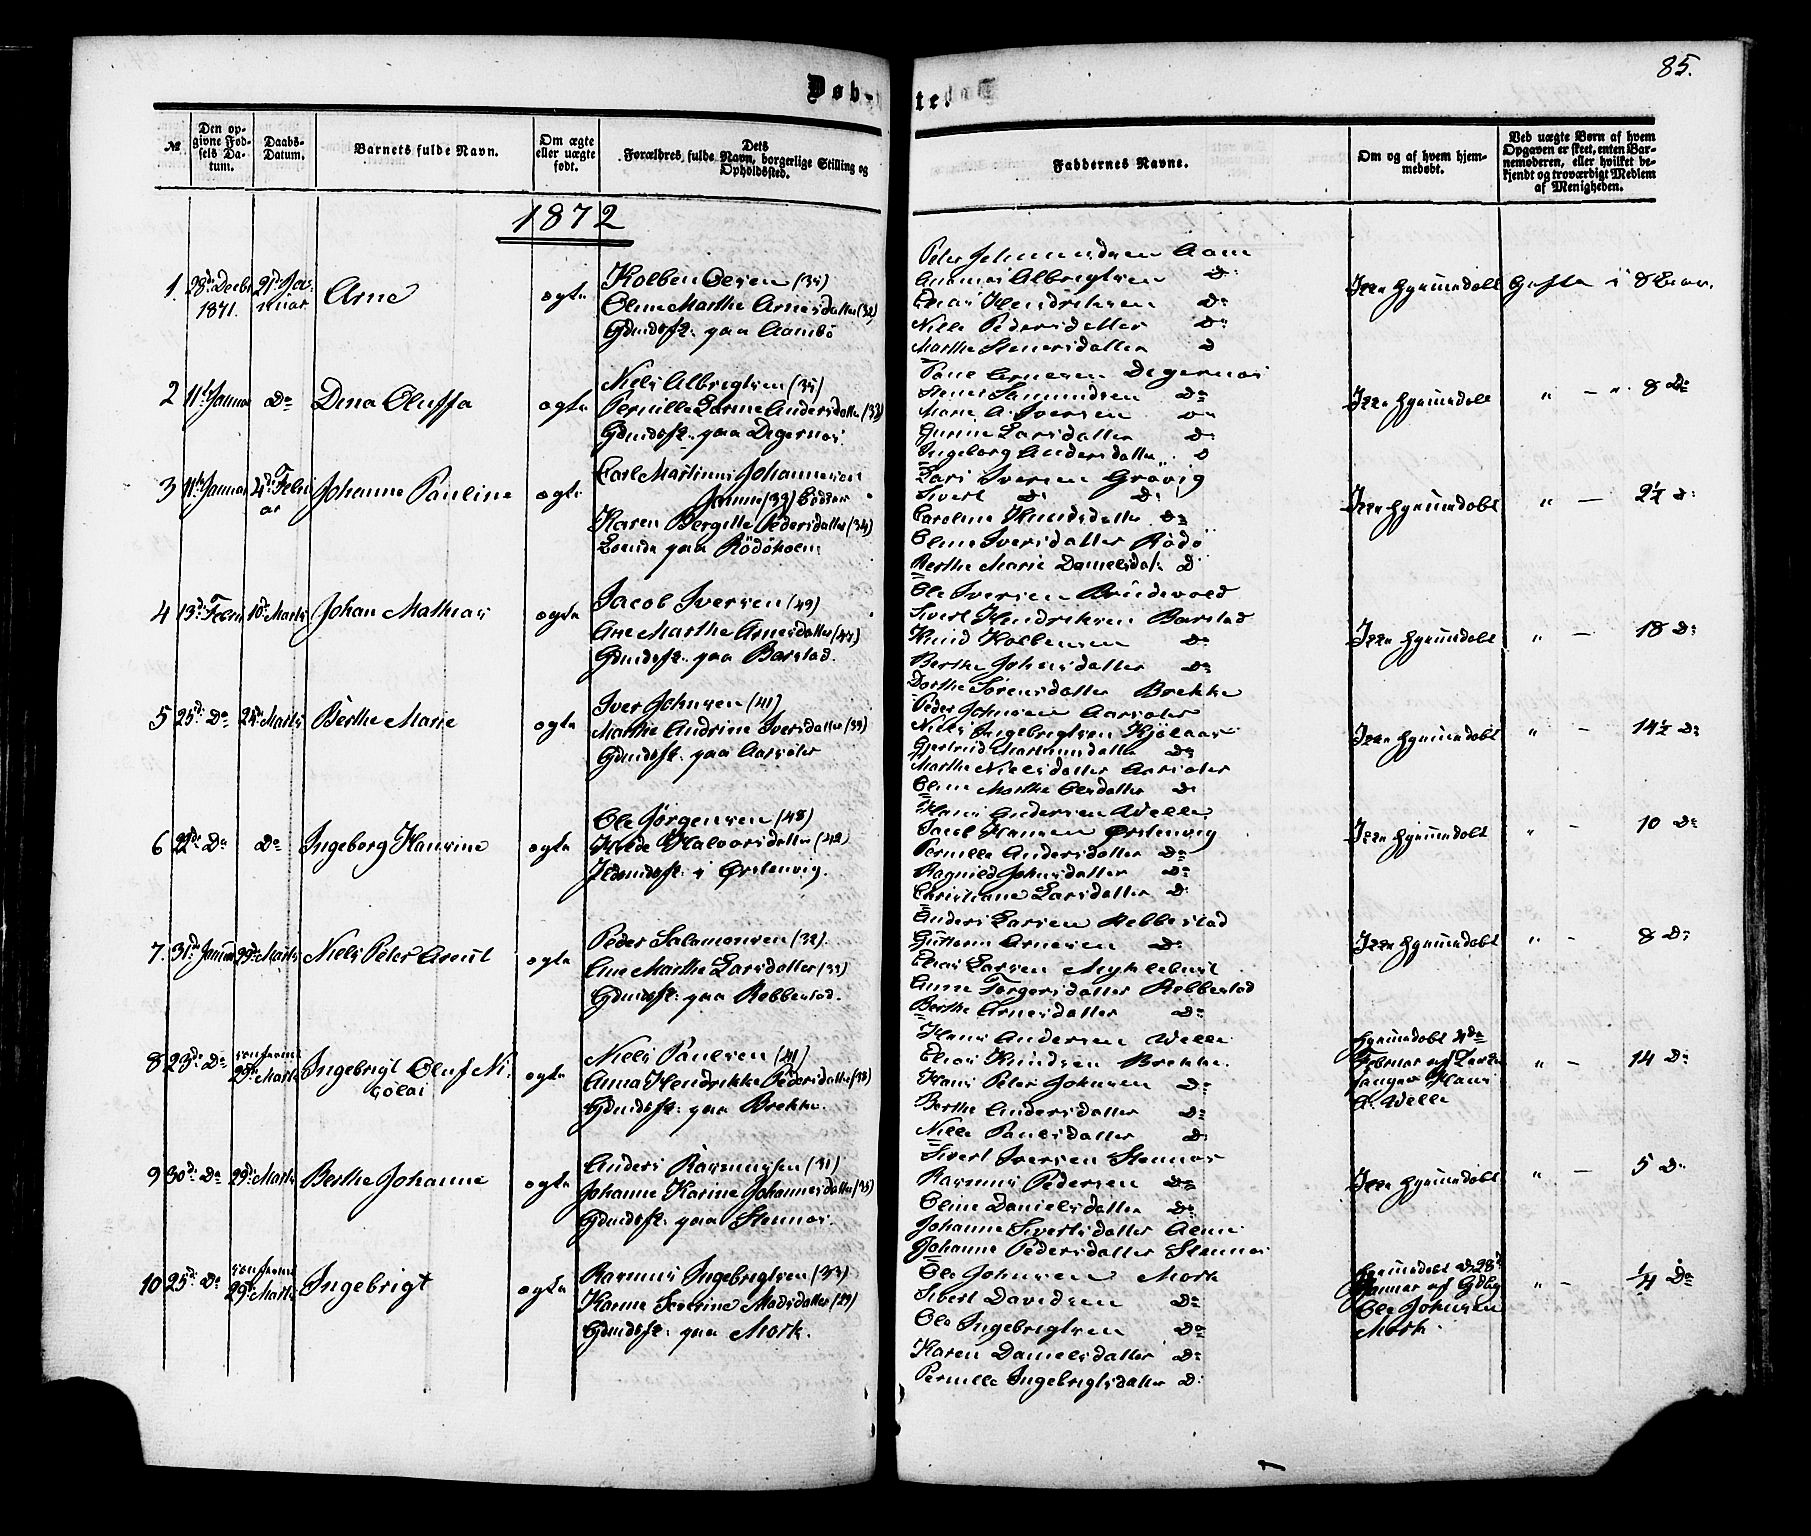 85.
Døbte.
№
Den opgivne Fødsels Datum.
Daabs-Datum.
Barnets fulde Navn.
Om ægte eller uægte født.
Dets Forældres fulde Navn, borgerlige Stilling og Opholdssted.
Faddernes Navne.
Om og af hvem hjemmedøbt.
Ved uægte Børn af hvem Opgaven er skeet, enten Barnemoderen, eller hvilket bekjendt og troværdigt Medlem af Menigheden.
1872
1. 28de Decbr 1871. 21de Januar Arne ægte
Kolben Olsen (35)
Oline Marthe Arnesdatter (32)
Gdmdsfk. paa Aambø
Peter Johannesdsen Aam
Rasmus Albregtsen Do
Elias Hendriksen Do
Nille Pedersdatter Do
Marthe Stenersdatter Do
Ikke hjemmedøbt
2 11te Januar Do Dina Oluffa ægte
Niels Albregtsen (35)
Pernille Larine Andersdatter (32)
Gdmdsfk. paa Degernæs
Arnesen Degernæs
Stener Samundsen Do
Iversen Do
Gurine Larsdatter Do
Ingeborg Andersdatter Do
Ikke hjemmedøbt " - " 8 Do
3 11te Januar 4de Februar Johanne Pauline ægte
Carl Martinus Johannesen
Karen Bergitte Pedersdatter (34)
Boende paa Rødøholm
Lars Iversen Grøvig
Sivert Do Do
Caroline Knudsdatter Do
Oline Iversdatter Rødø
Berthe Marie Danielsdat. Do
Ikke hjemmedøbt " - 2½ Do
4 13de Febr 10de Marts Johan Mathias ægte
Jacob Iversen (49)
Ane Marthe Arnesdatter (47)
Gdmdsfk. paa Barstad.
Ole Iversen Brudevold
Sivert Hendriksen Barstad
Knud Kolbensen Do
Berthe Johnsdatter Do
Dorthe Sørensdatter Brekke
Ikke hjemmedøbt " - 18 Do
5 25de Do 24de Marts Berthe Marie ægte
Iver Johnsen (41)
Marthe Andrine Iversdatter (39)
Gdmdsfk. paa Aarsæter
Peder Johnsen Aarsæter
Niels Ingebrigtsen Kjølaas
Gjertrud Do
Marthe Nielsdatter Aarsæter
Oline Marthe Olesdatter Do
Ikke hjemmedøbt " - 14½ Do
6 22de Do Do Ingeborg Hansine ægte
Ole Jørgensen (48)
Halvorsdatter (42)
i Ørstenvig.
Hans Andersen Welle
Jacob Hansen Ørstenvig
Pernille Andersdatter Do
Ragnild Johnsdatter Do
Christiane Larsdatter Do
Ikke hjemmedøbt " - 10 Do
7. 31de Januar 29de Marts Niels Peter Arnut ægte
Peder Salamonsen (32).
Ane Marthe Larsdatter (33)
Gdmdsfk. paa Rebbestad.
Anders Larsen Rebbestad
Guttorm Arnesen Do
Elias Larsen Myklebust
Anne Torgersdatter Rebbestad
Berthe Arnesdatter Do
Ikke hjemmedøbt " - 8 Do
8 23de Do 29de Marts Ingebrigt Oluf Nikolai ægte
Niels Paulsen (41)
Anna Hendrikke Pedersdatter (38)
Gdmdsfk. paa Brekke.
Hans Andersen Welle
Elias Knudsen Brekke.
Hans Peter Johnsen Do
Berthe Andersdatter Do
Nille Paulsdatter Do
hjemmedøbt 4de Februar af Hans A. Welle " - 14 Do
9 30te Do 29de Marts Berthe Johanne ægte
Anders Rasmussen (31)
Johanne Karine Johannesdatter (35)
Gdmdsfk. paa Stennæs.
Sivert Iversen Stennæs
Rasmus Pedersen Do
Oline Danielsdatter Do
Johanne Sivertsdatter
Johanne Pedersdatter Stennæs
Ikke hjemmedøbt " - 5 Do
10 25de Do 29de Marts Ingebrigt ægte
Rasmus Ingebrigtsen (33)
Karine Severine Madsdatter (29)
Gdmdsfk. paa Mork.
Ole Johnsen Mork
Sivert Davidsen Do
Ole Ingebrigtsen Do
Karen Danielsdatter Do
Pernille Ingebrigtsdatter Do
hjemmedøbt d. 28de Januar af Ole Johnsen Mork. " - ¼ Do